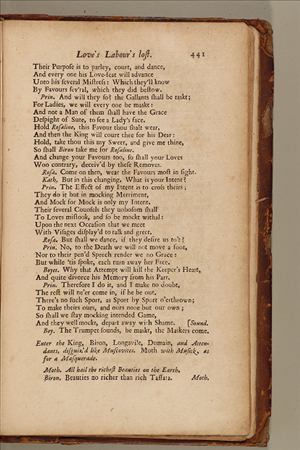 Love's Labour's lost. 441
Their Purpose is to parley, court, and dance,
And every one his Love-feat will advance
Unto his several Mistress: Which they'll know
By Favours sev'ral, which they did bestow.
Prin. And will they so? the Gallants shall be taskt;
For Ladies, we will every one be maskt:
And not a Man of them shall have the Grace
Despight of Sute, to see a Lady's face.
Hold Rosaline, this Favour thou shalt wear,
And then the King will court thee for his Dear:
Hold, take thou this my Sweet, and give me thine,
So shall Biron take me for Rosaline.
And change your Favours too, so shall your Loves
Woo contrary, deceiv'd by these Removes.
Rosa. Come on then, wear the Favours most in sight.
Kath. But in this changing, What is your Intent?
Prin. The Effect of my Intent is to cross theirs;
They do it but in mocking Merriment,
And Mock for Mock is only my Intent.
Their several Counsels they unbosom shall
To Loves mistook, and so be mockt withal:
Upon the next Occasion that we meet
With Visages display'd to talk and greet.
Rosa. But shall we dance, if they desire us to't?
Prin. No, to the Death we will not move a foot,
Nor to their pen'd Speech render we no Grace:
But while 'tis spoke, each turn away her Face.
Boyet. Why that Attempt will kill the Keeper's Heart,
And quite divorce his Memory from his Part.
Prin. Therefore I do it, and I make no doubt,
The rest will ne'er come in, if he be out.
There's no such Sport, as Sport by Sport o'erthrown;
To make theirs ours, and ours none but our own;
So shall we stay mocking intended Game,
And they well mockt, depart away with Shame. [Sound.
Boy. The Trumpet sounds, be maskt, the Maskers come.
Enter the King, Biron, Longavile, Dumain, and Atten-
dants, disguis'd like Muscovites. Moth with Musick, as
for a Masquerade.
Moth. All hail the richest Beauties on the Earth.
Biron. Beauties no richer than rich Taffata.
Moth.